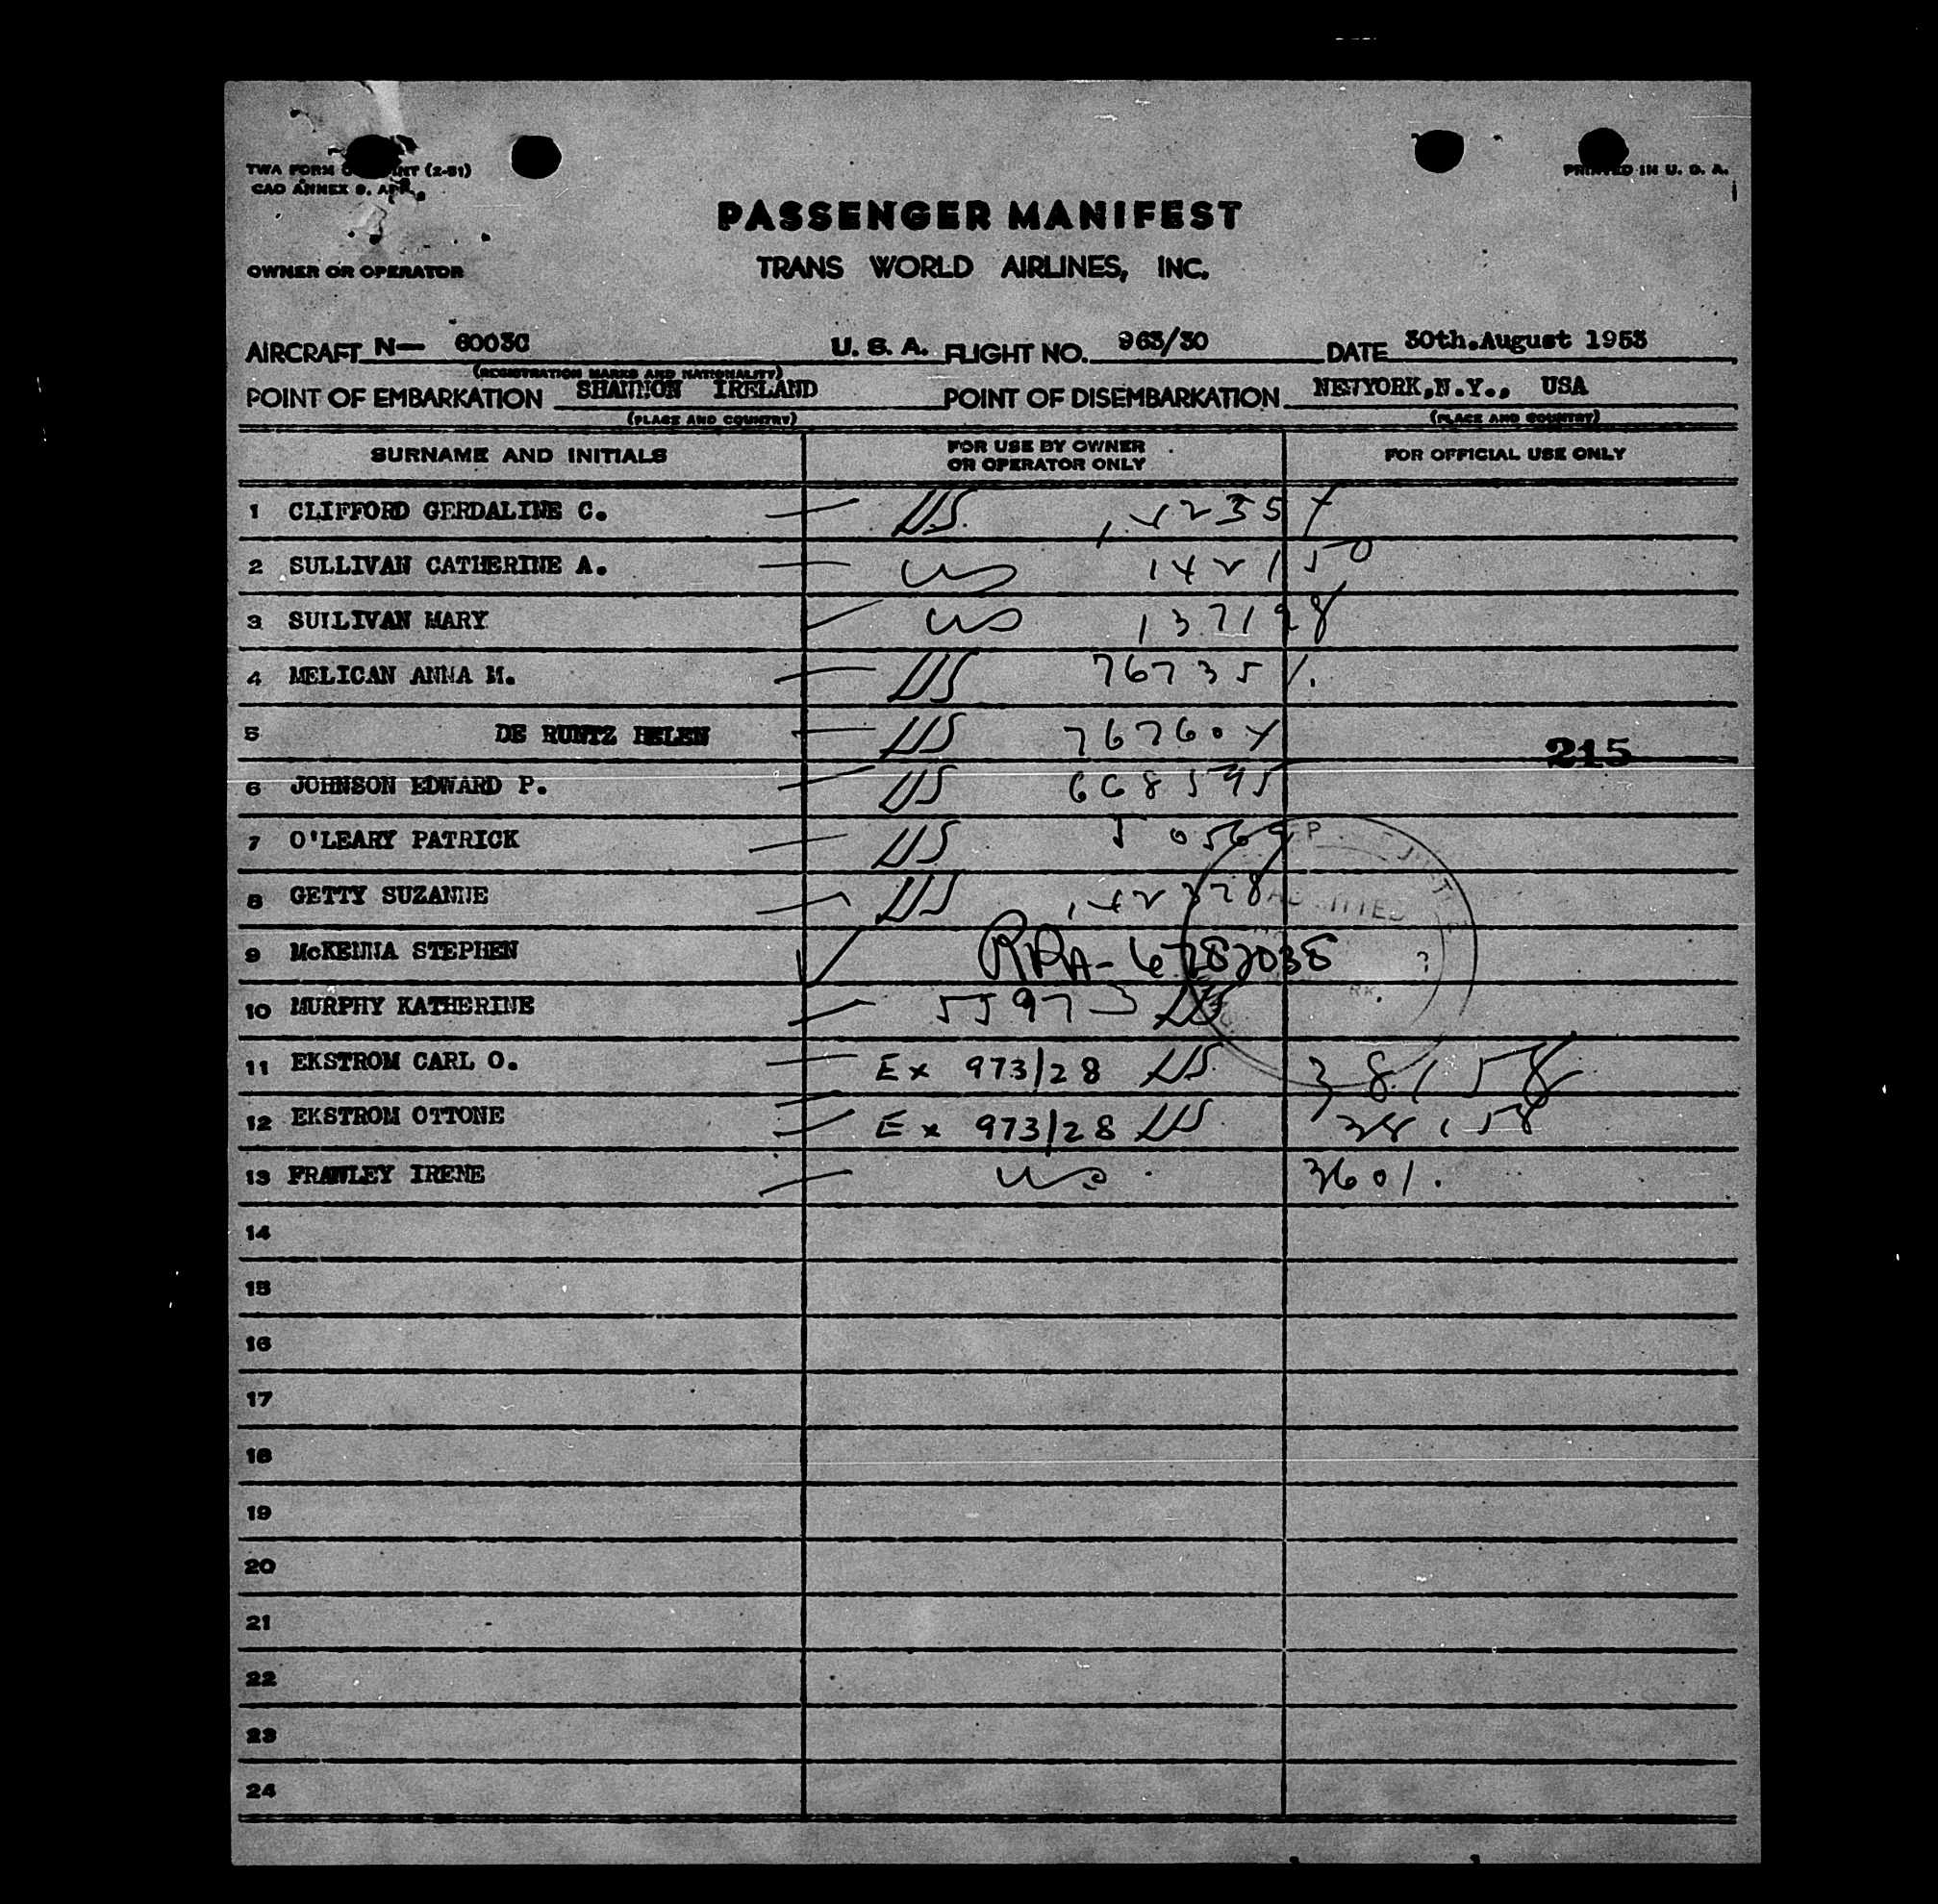 TWA FORM INT (2-51)
CAO ANNEX 9. APP.
PRINTED IN U. S. A.
PASSENGER MANIFEST
OWNER OR OPERATOR TRANS WORLD AIRLINES, INC.
AIRCRAFT N— 6003C U. S. A. FLIGHT NO. 963/30 DATE 30th.August 1953
(REGISTRATION MARKS AND NATIONALITY)
POINT OF EMBARKATION SHANNON IRELAND POINT OF DISEMBARKATION NEWYORK,N.Y., USA
(PLACE AND COUNTRY) (PLACE AND COUNTRY)
SURNAME AND INITIALS FOR USE BY OWNER OR OPERATOR ONLY FOR OFFICIAL USE ONLY
1 CLIFFORD GERDALINE C. US
2 SULLIVAN CATHERINE A. US 142150
3 SULLIVAN MARY US 137198
4 MELICAN ANNA M. US 767351
5 DE RUNTZ HELEN US
215
6 JOHNSON EDWARD P. US 668595
7 O'LEARY PATRICK US
8 GETTY SUZANNE US 142378
ADMITTED
9 McKENNA STEPHEN 6782038
10 MURPHY KATHERINE 55973 US
11 EKSTROM CARL O. Ex 973/28 US 38158
12 EKSTROM OTTONE Ex 973/28 US 38158
13 FRAWLEY IRENE US 3601.
14
15
16
17
18
19
20
21
22
23
24